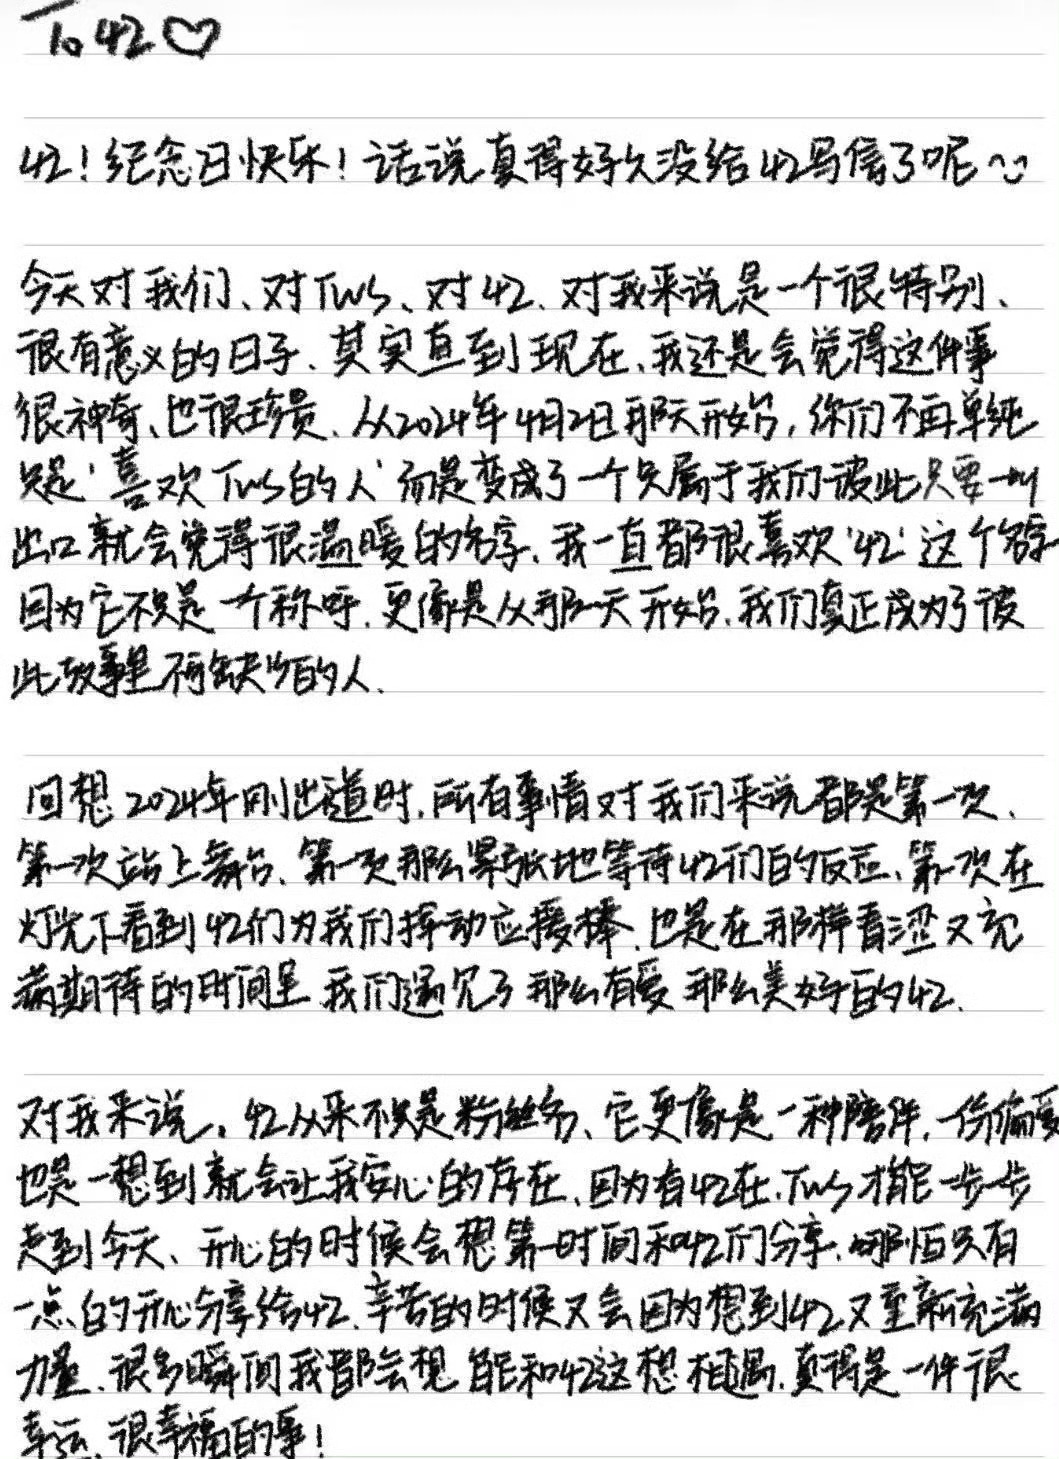 To 42♡
42！纪念日快乐！话说真得好久没给42写信了呢~
今天对我们、对TWS、对42、对我来说是一个很特别、
很有意义的日子、其实直到现在、我还是会觉得这件事
很神奇、也很珍贵、从2024年4月2日那天开始，你们不再单纯
只是‘喜欢TWS的人’而是变成了一个只属于我们彼此只要一叫
出口就会觉得很温暖的名字、我一直都很喜欢‘42’这个名字
因为它不只是一个称呼、更像是从那一天开始、我们真正成为了彼
此故事里不可缺少的人、
回想2024年刚出道时、所有事情对我们来说都是第一次、
第一次站上舞台、第一次那么紧张地等待42们的反应、第一次在
灯光下看到42们为我们挥动应援棒、也是在那样青涩又充
满期待的时间里 我们遇见了那么有爱 那么美好的42、
对我来说，42从来不只是粉丝名、它更像是一种陪伴、一份偏爱
也是一想到就会让我安心的存在、因为有42在、TWS才能一步一步
走到今天、开心的时候会想第一时间和42们分享、哪怕只有
一点的开心分享给42、辛苦的时候又会因为想到42又重新充满
力量、很多瞬间我都会想 能和42这想相遇、真得是一件很
幸运、很幸福的事！